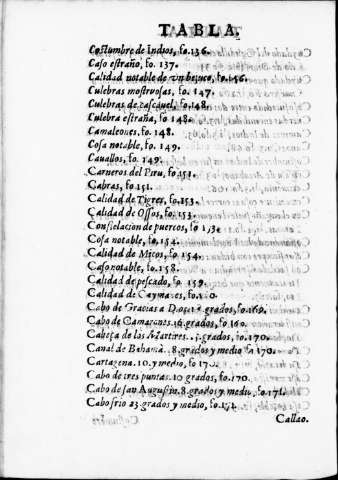 TABLA.
Costumbre de Indios, fo. 136.
Caso estraño, fo. 137.
Calidad notable de vn bejuco, fo. 146.
Culebras mostruosas, fo. 147.
Culebras de cascauel, fo. 148.
Culebra estraña, fo. 148.
Camaleones, fo. 148.
Cosa notable, fo. 149.
Cauallos, fo. 149.
Carneros del Piru, fo. 151.
Cabras, fo. 151.
Calidad de Tigres, fo. 153.
Calidad de Ossos, fo. 153.
Constelacion de puercos, fo 153
Cosa notable, fo. 154.
Calidad de Micos, fo 154.
Caso notable, fo. 158.
Calidad de pescado, fo. 159.
Calidad de Caymanes, fo.
Cabo de Gracias a Dios grados, fo. 169.
Cabo de Camarones, 16. grados, fo 169.
Cabeça de los Martires grados, fo. 170.
Canal de Bahama grados y medio fo 170.
Cartagena. 10. y medio, fo 170.
Cabo de tres puntas. 10 grados, fo. 170.
Cabo de san Augustin. 8 grados y medio, fo. 171.
Cabo frio 23 grados y medio, fo. 171.
Callao.